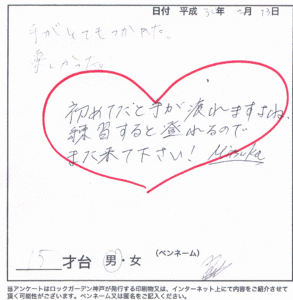 日付 平成 年 月 13日
手がとてもつかれた。
楽しかった。
初めてだと手が疲れますよね。
練習すると登れるので
また来て下さい! Mizuka
15才台 男・女 (ペンネーム)
当アンケートはロックガーデン神戸が発行する印刷物又は、インターネット上にて内容をご紹介させて
頂く可能性がございます。ペンネーム又は匿名をご記入ください。